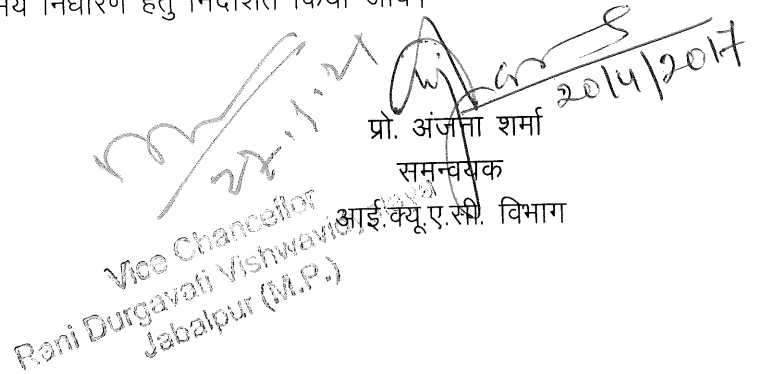 निर्धारण हेतु निर्देशित किया जाये।
20/4/2017
प्रो. अंजना शर्मा
समन्वयक
आई.क्यू.ए.सी. विभाग
Vice Chancellor
Rani Durgavati Vishwavidyalaya
Jabalpur (M.P.)